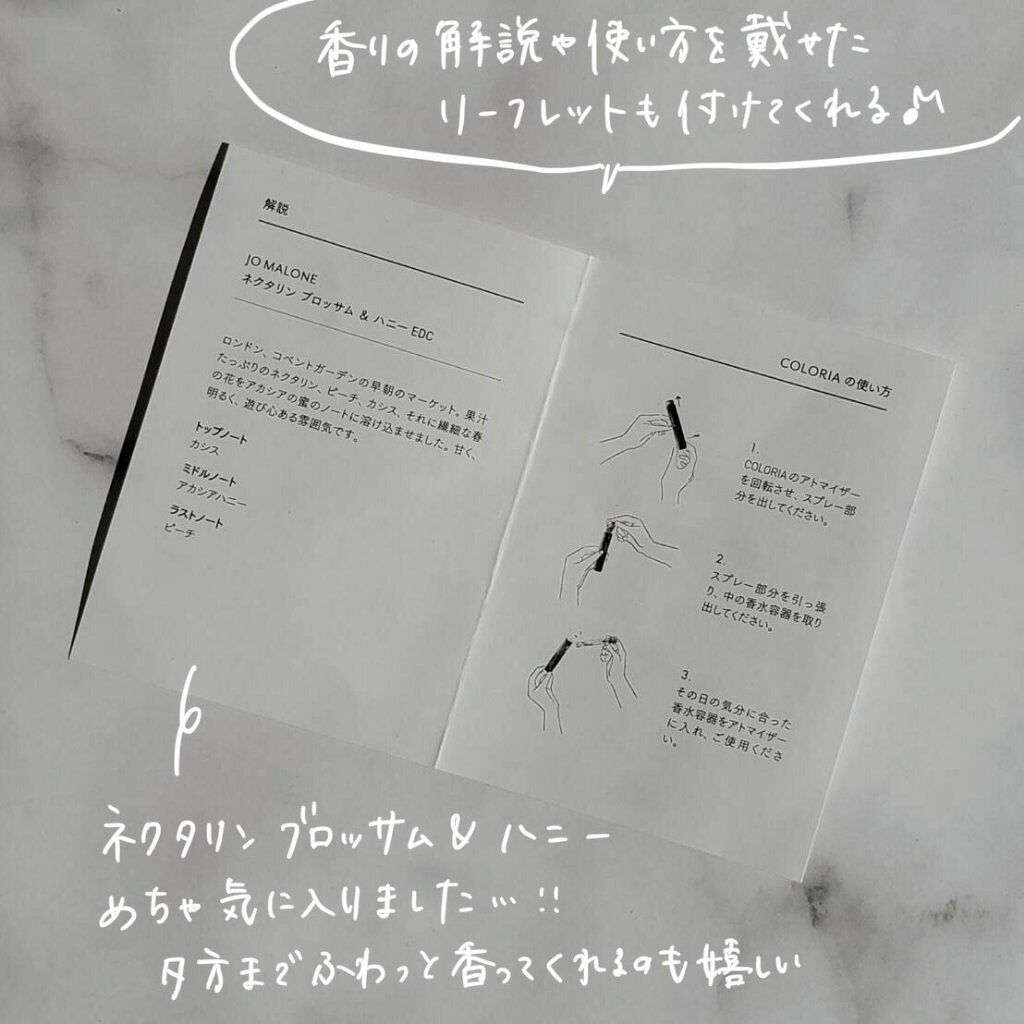 香りの解説や使い方を載せた
リーフレットも付けてくれる♪
解説
JO MALONE
ネクタリン ブロッサム & ハニー EDC
ロンドン、コベントガーデンの早朝のマーケット。果汁
たっぷりのネクタリン、ピーチ、カシス、それに繊細な春
の花をアカシアの蜜のノートに溶け込ませました。甘く、
明るく、遊び心ある雰囲気です。
トップノート
カシス
ミドルノート
アカシアハニー
ラストノート
ピーチ
COLORIA の使い方
1.
COLORIAのアトマイザー
を回転させ、スプレー部
分を出してください。
2.
スプレー部分を引っ張
り、中の香水容器を取り
出してください。
3.
その日の気分に合った
香水容器をアトマイザー
に入れ、ご使用くださ
い。
ネクタリン ブロッサム & ハニー
めちゃ気に入りました…!!
夕方までふわっと香ってくれるのも嬉しい